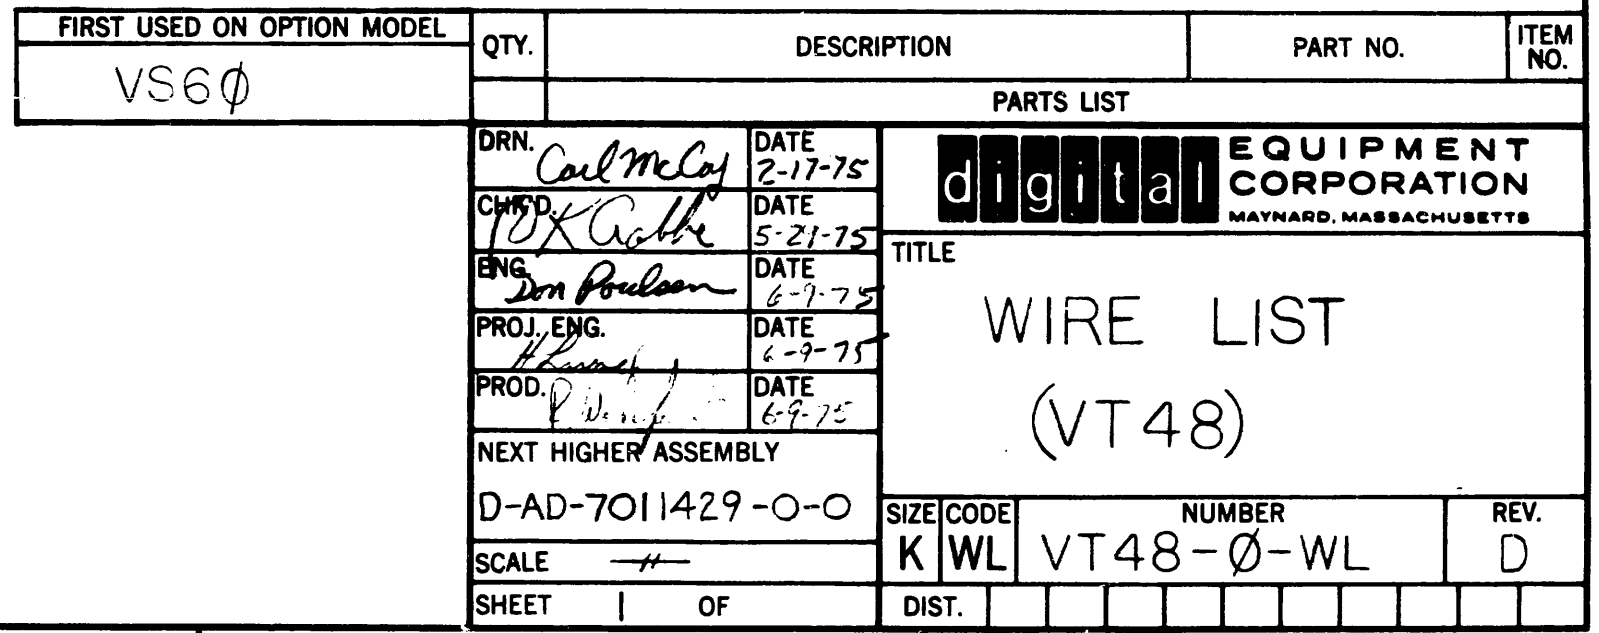 FIRST USED ON OPTION MODEL
VS6Ø
QTY.
DESCRIPTION
PART NO.
ITEM NO.
PARTS LIST
DRN.
Carl McCoy
DATE
2-17-75
CHK'D.
K Crabbe
DATE
5-21-75
ENG.
Don Poulsen
DATE
6-9-75
PROJ. ENG.
H
DATE
6-9-75
PROD.
R
DATE
6-9-75
NEXT HIGHER ASSEMBLY
D-AD-7011429-0-0
SCALE
SHEET 1 OF
digital
EQUIPMENT
CORPORATION
MAYNARD, MASSACHUSETTS
TITLE
WIRE LIST
(VT48)
SIZE
K
CODE
WL
NUMBER
VT48-Ø-WL
REV.
D
DIST.